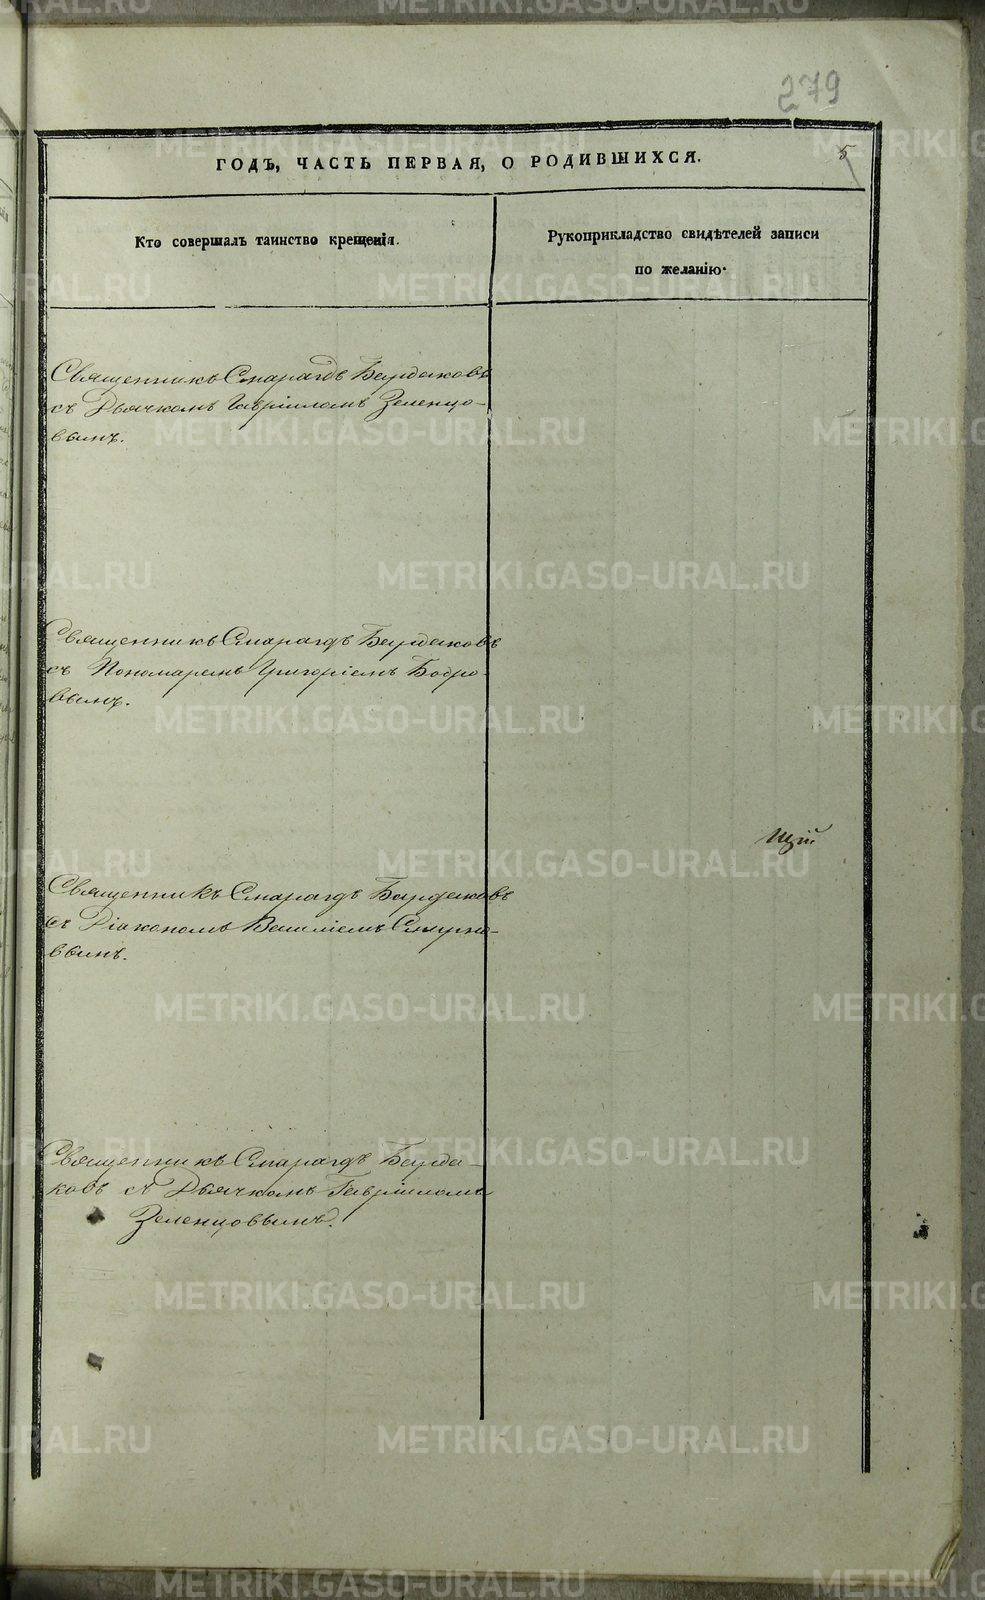 279
5
ГОДЪ, ЧАСТЬ ПЕРВАЯ, О РОДИВШИХСЯ.
Кто совершалъ таинство крещенія.
Рукоприкладство свидѣтелей записи
по желанію.
Священникъ Смарагдъ Бурдаковъ
съ Дьячкомъ Гавріиломъ Зеленцо-
вымъ.
Священникъ Смарагдъ Бурдаковъ
съ Пономаремъ Григоріемъ Бобро-
вымъ.
щій
Священникъ Смарагдъ Бурдаковъ
съ Діакономъ Василіемъ Смирно-
вымъ.
Священникъ Смарагдъ Бурда-
ковъ съ Дьячкомъ Гавріиломъ
Зеленцовымъ.
METRIKI.GASO-URAL.RU